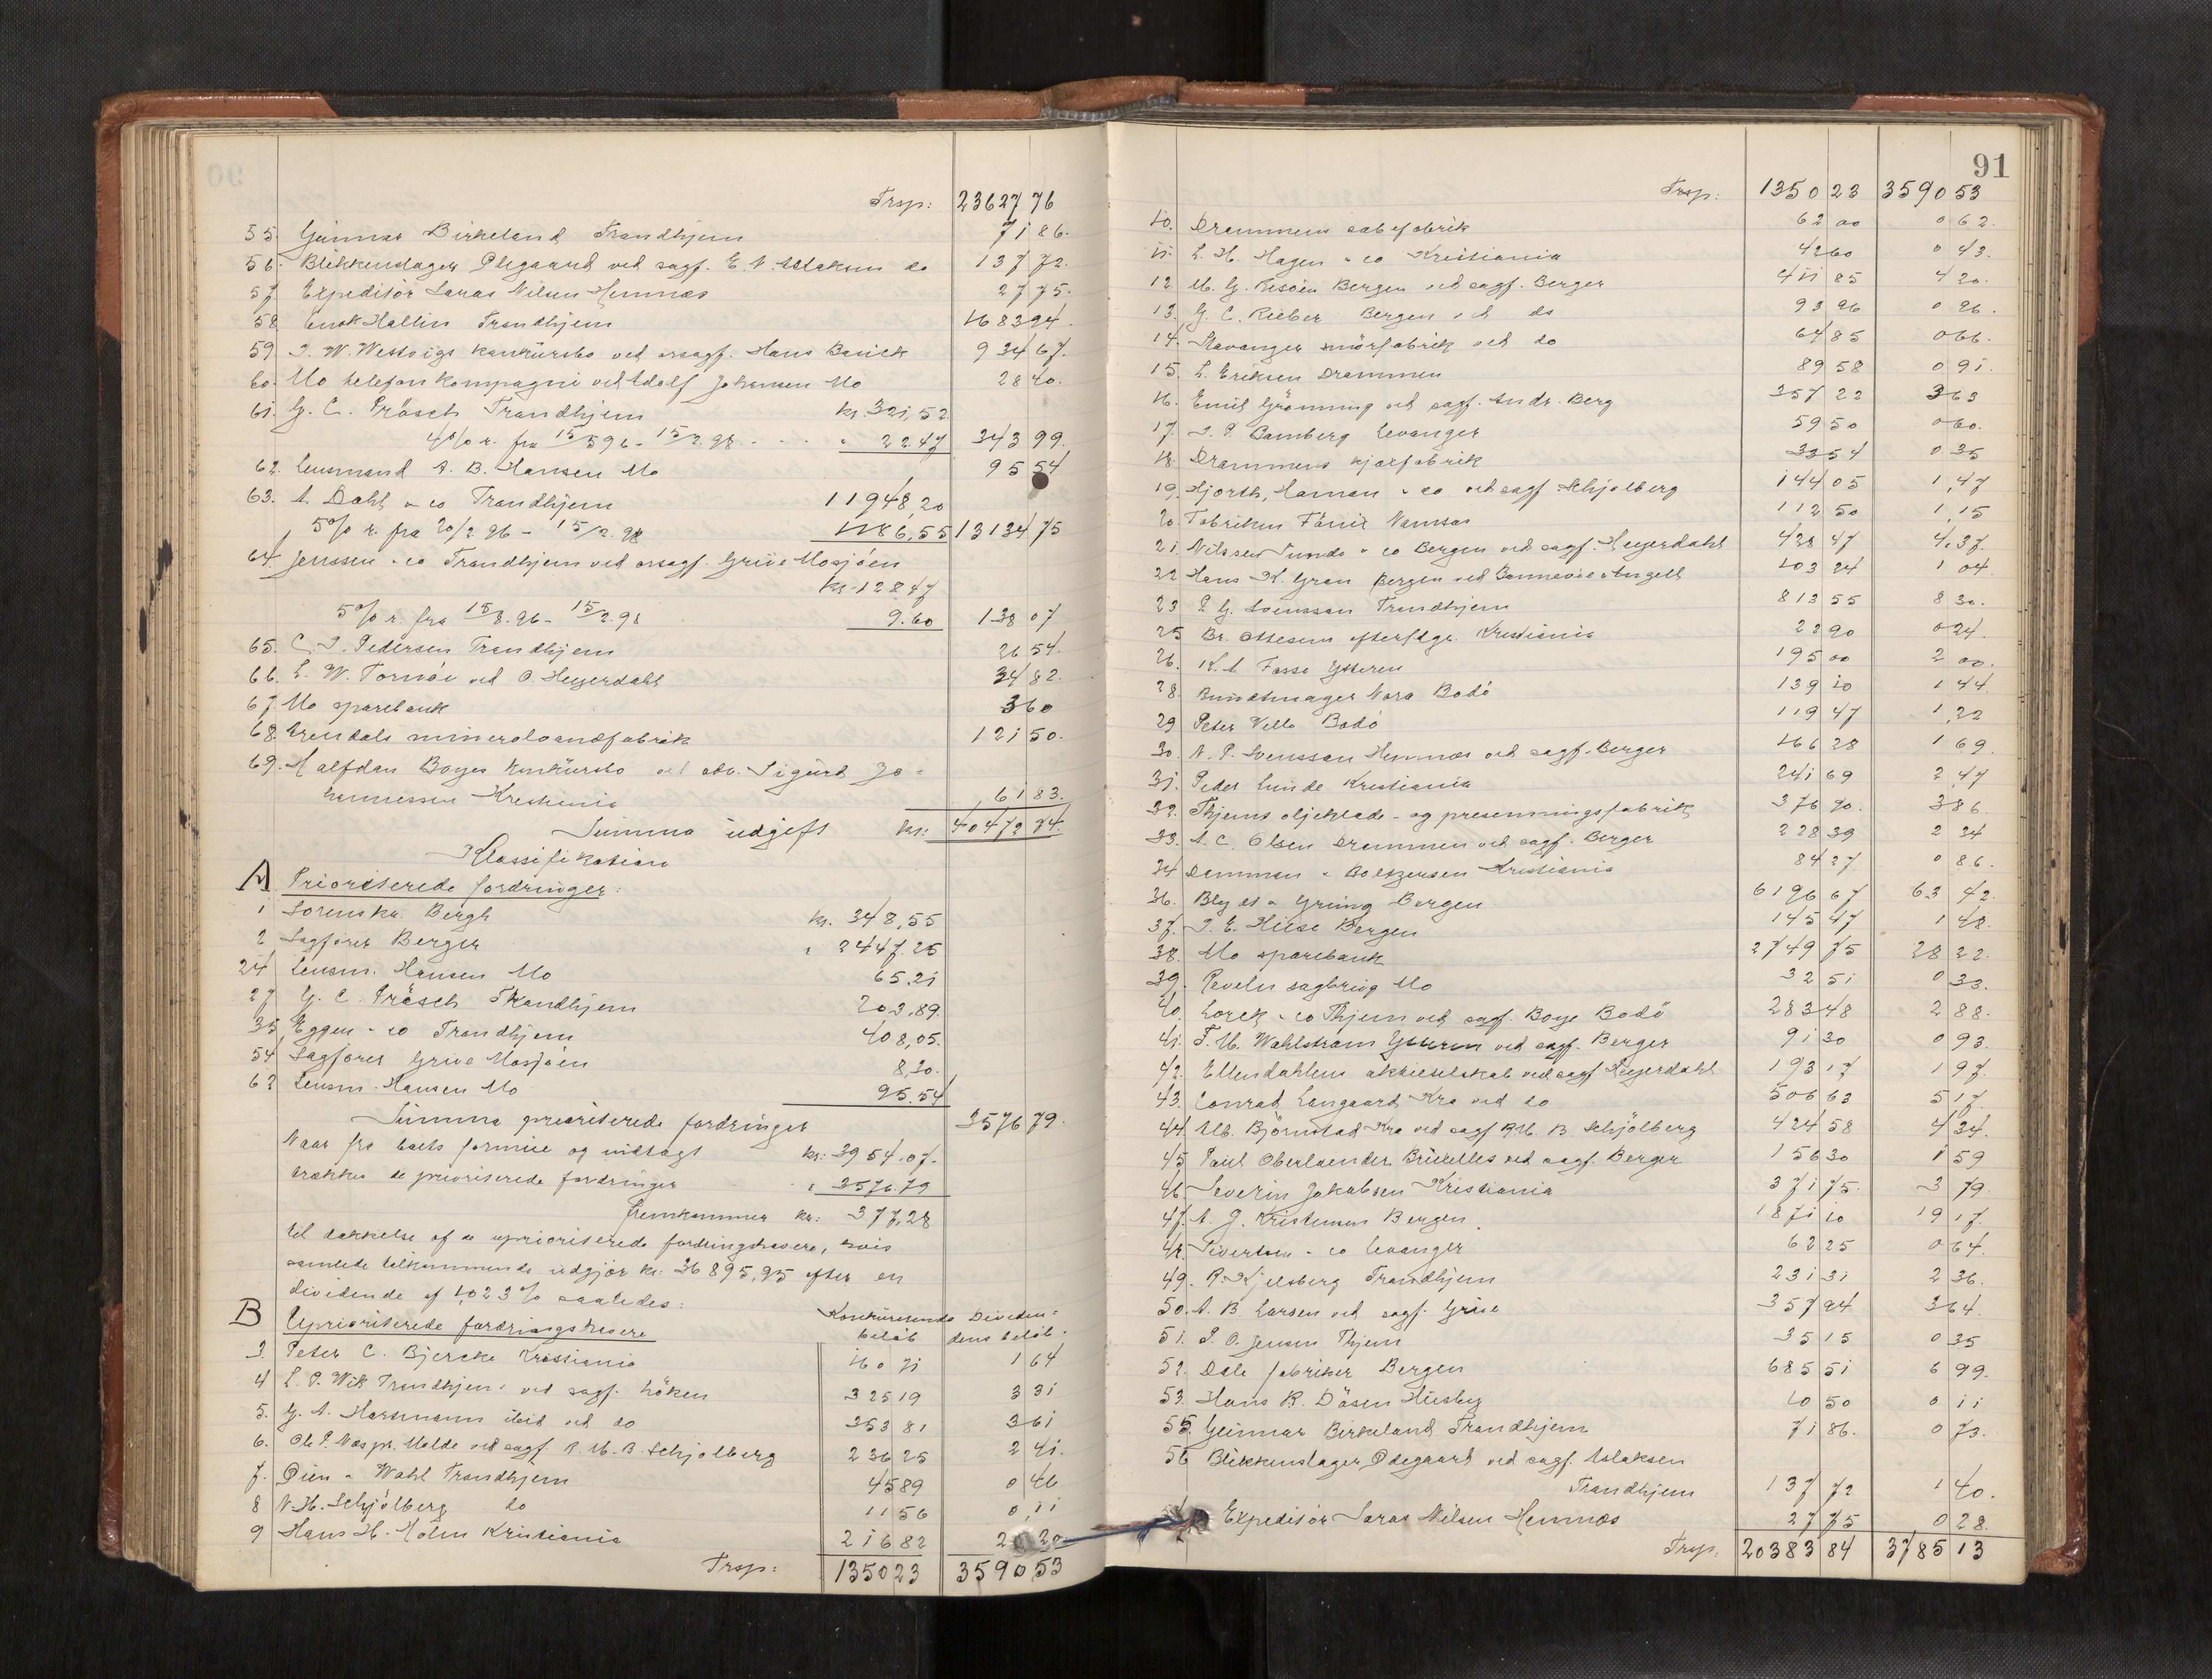 Trsp: 23627 76
55. Gunnar Birkeland Trondhjem 71 86.
56. Blikkenslager Ødegaard ved sagf. E. N. Aslaksen do 137 72.
57 Expeditör Laras Nilsen Hemnæs 27 75.
58 Enok Hallin Trondhjem 1683 94.
59. I. W. Westvigs konkursbo ved orsagf. Hans Bauck 934 67.
60. Mo telefonkompagni ved Adolf Johansen Mo 28 40.
61. G. C. Präsch Trondhjem kr. 321,52
4% r. fra 15/5 96 - 15/2 98 - - - " 22.47 343 99.
62. Lensmand A. B. Hansen Mo 95 54
63. A. Dahl & co Trondhjem 11948,20
5% r. fra 20/2 96 - 15/2 98 1186,55 13134 75
64 Jenssen & co Trondhjem ved orsagf. Grive Mosjöen
kr. 128 47
5% r. fra 15/8. 96 - 15/2. 98 9.60 138 07
65. C. I. Pedersen Trondhjem 26 54.
66. L. W. Tornöe ved O. Heyerdahl 34 82.
67. Mo sparebank 3 60
68. Arendals mineralvandfabrik 121 50.
69. Halfdan Boyes konkursbo ved adv. Sigurd Jo-
hannessen Kristiania 61 83.
Summa udgift kr: 40472 74.
Klassifikation
A Prioriterede fordringer:
1 Sorenskr. Bergh kr. 348,55
2 Sagförer Berger " 2447.25
24 Lensm. Hansen Mo 65.21
27 G. C. Präsch Trondhjem 203.89.
35 Eggen & co Trondhjem 408,05.
54 Sagförer Grive Mosjöen 8,30.
62 Lensm. Hansen Mo 95.54
Summa prioriterede fordringer 3576 79.
Naar fra boets formue og indtægt kr: 3954.07.
trækkes de prioriterede fordringer " 3576.79
fremkommer kr: 377,28
til dækkelse af de uprioriterede fordringshavere, hvis
samlede tilkommende udgjör kr: 36895,95 efter en
dividende af 1,023% saaledes:
B Uprioriterede fordringshavere Konkurrerende belöb Dividen- dens belöb.
3. Peter C. Bjercke Kristiania 160 71 1 64
4 L. P. Wik Trondhjem ved sagf. Löken 325 19 3 31
5. G. A. Hartmann ibid ved do 353 81 3 61
6. Ole P. Næsgr. Molde ved sagf. R. M. B. Schjölberg 236 25 2 41.
7. Øien & Wahl Trondhjem 45 89 0 46
8 N. H. Schjölberg do 11 56 0,11
9 Hans H. Holm Kristiania 216 82 2 20
Trsp: 1350 23 3590 53
91
Trsp: 1350 23 3590 53
10. Drammens sabefabrik 62 00 0 62.
11. L. H. Hagen & co Kristiania 42 60 0 43.
12 M. G. Risöen Bergen ved sagf. Berger 411 85 4 20.
13. G. C. Rieber Bergen ved do 93 96 0 96.
14. Stavanger smörfabrik ved do 64 85 0 66.
15. L. Eriksen Drammen 89 58 0 91.
16. Emil Grönning ved sagf. Andr. Berg 357 22 3 63
17. I. P. Bamberg Levanger 59 50 0 60.
18. Drammens kjoxfabrik 33 54 0 35
19. Hjorth, Haman & co ved sagf. Schjölberg 144 05 1,47
20. Fabriken Fönix Namsos 112 50 1,15
21. Nilssen Sunde & co Bergen ved sagf. Heyerdahl 428 47 4,37.
22 Hans K. Gran Bergen ved Bonnevie Angell 103 24 1 04
23 P. G. Svenssan Trondhjem 813 55 8 30.
25 Br. Ottesens efterflgr. Kristiania 22 90 0 24.
26. K. A. Fasse Ytteren 195 00 2 00.
28. Bundtmager Nora Bodö 139 10 1 44.
29 Peter Vells Bodö 119 47 1,22
30. N. P. Svenssan Hemnæs ved sagf. Berger 166 28 1 69.
31. Peder Lunde Kristiania 241 69 2,47
32. Thjems oljeklæde- og presenningsfabrik 376 90. 3 86
33. A. C. Olsen Drammen ved sagf. Berger 228 39 2 34
34 Damman & Boltzersen Kristiania 84 27 0 86.
36. Bley & Gruing Bergen 6196 67 63 42.
37. I. E. Huse Bergen 145 47 1 48.
38. Mo sparebank 2749 75 28 22.
39. Revelen sagbrug Mo 32 51 0 33.
40. Lorck & co Thjem ved sagf. Boye Bodö 283 48 2 88.
41. F. M. Wahlström Ytteren ved sagf. Berger 91 30 0 93.
42. Ellendahlens aktieselskab ved sagf Heyerdahl 193 17 1 97.
43. Conrad Langaard Kra ved do 506 63 5 17.
44 Alb. Björnstad Kra ved sagf R. M. B. Schjölberg 424 58 4 34.
45. Paul Oberlaender Brüxelles ved sagf. Berger 156 30 1 59
46. Severin Jakobsen Kristiania 371 75. 3 79.
47. A. G. Kristensen Bergen 1871 10 19 17.
48. Sivertsen & co Levanger 62 25 0 64.
49. R. Kjelsberg Trondhjem 231 31 2 36.
50. A. B. Larsen ved sagf. Grive 357 94 3 64.
51. P. O. Jensen Thjem 35 15 0 35
52. Dale fabriker Bergen 685 51 6 99.
53. Hans R. Dösen Husby 10 50 0 11
55. Gunnar Birkeland Trondhjem 71 86. 0 73.
56 Blikkenslager Ødegaard ved sagf. Aslaksen
Trondhjem 137 72 1 40.
Expeditör Laras Nilsen Hemnæs 27 75 0 28.
Trsp. 20383 84 3785 13